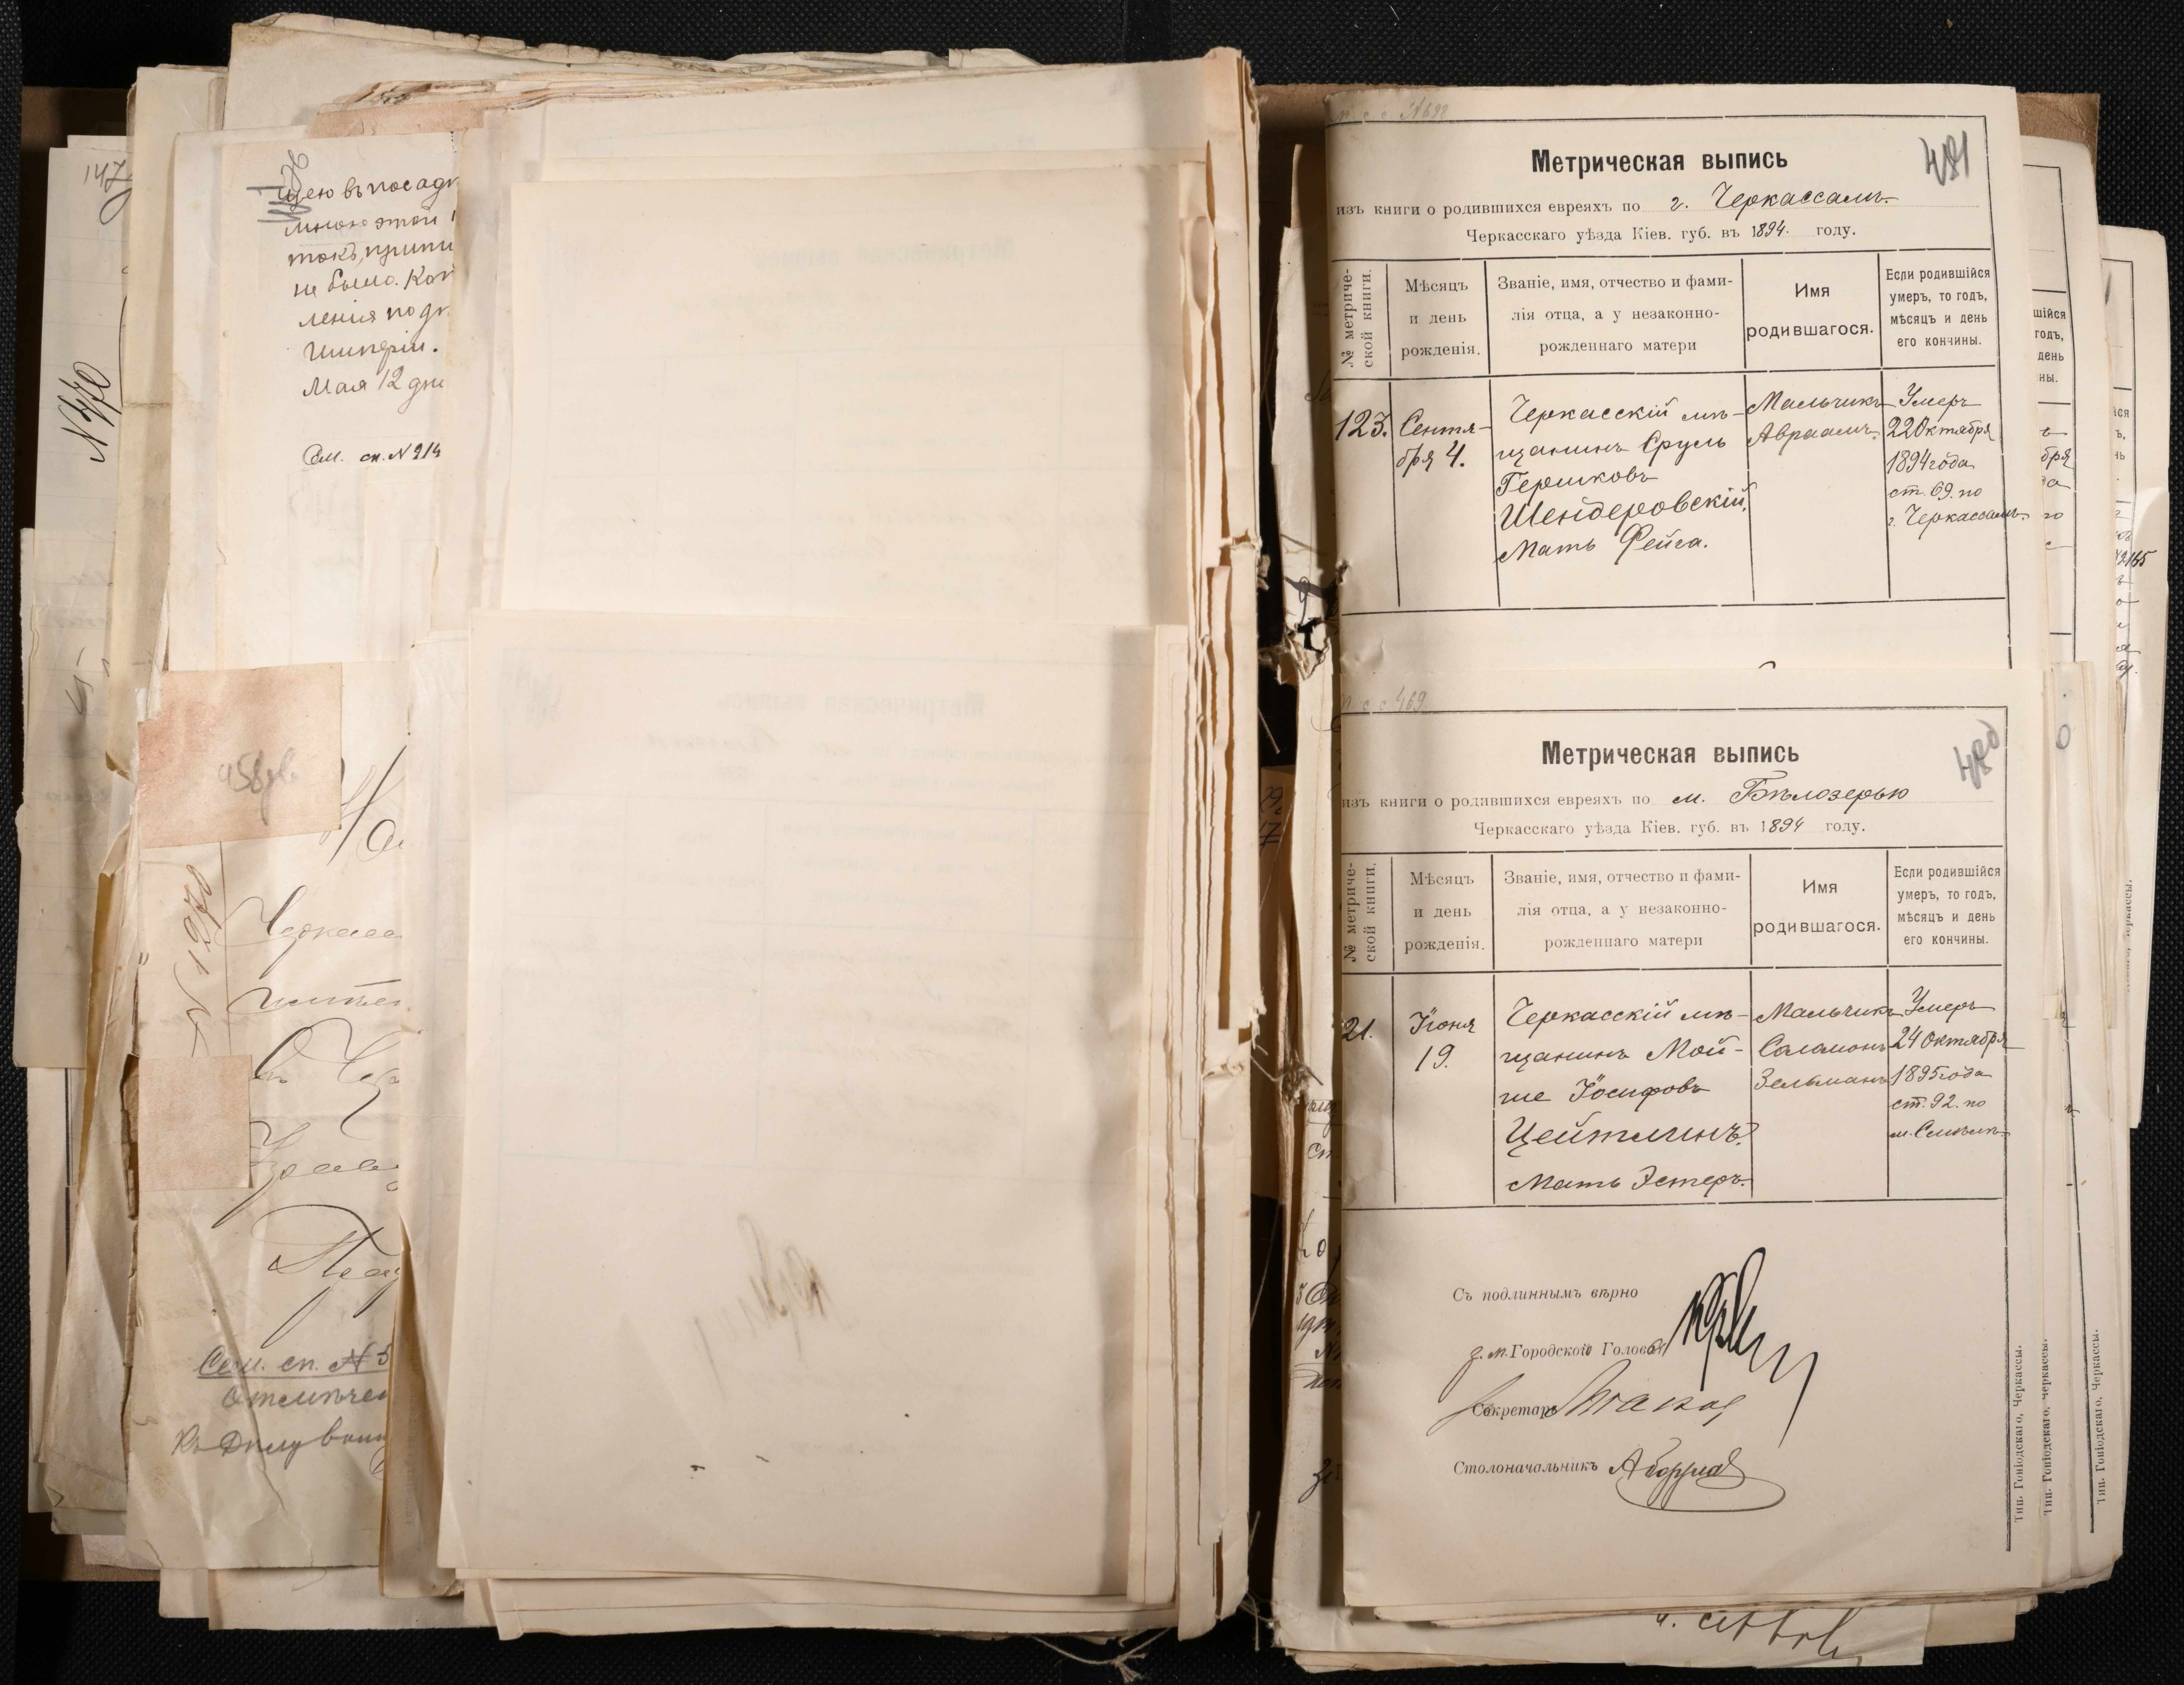 147
N 470
щею въ посадк
мною этой
токъ, припи
не было. Кан
ленія подк
Имперіи.
Мая 12 дня
Сем. сп. N 214
458
N 1270
Черкасс
Сем. сп. N 5
Отмѣчен
Къ дѣлу воин
п с с N 698
481
Метрическая выпись
изъ книги о родившихся евреяхъ по г. Черкассамъ.
Черкасскаго уѣзда Кіев. губ. въ 1894. году.
№ метриче-
ской книги.
Мѣсяцъ
и день
рожденія.
Званіе, имя, отчество и фами-
лія отца, а у незаконно-
рожденнаго матери
Имя
родившагося.
Если родившійся
умеръ, то годъ,
мѣсяцъ и день
его кончины.
123.
Сентя-
бря 4.
Черкасскій мѣ-
щанинъ Сруль
Гершковъ
Шендеровскій,
Мать Фейга.
Мальчикъ
Авраамъ.
Умеръ
22 Октября
1894 года
ст. 69. по
г. Черкассамъ.
п с с 469
480
Метрическая выпись
изъ книги о родившихся евреяхъ по м. Бѣлозерью
Черкасскаго уѣзда Кіев. губ. въ 1894 году.
№ метриче-
ской книги.
Мѣсяцъ
и день
рожденія.
Званіе, имя, отчество и фами-
лія отца, а у незаконно-
рожденнаго матери
Имя
родившагося.
Если родившійся
умеръ, то годъ,
мѣсяцъ и день
его кончины.
21.
Іюня
19.
Черкасскій мѣ-
щанинъ Мой-
ше Іосифовъ
Цейтлинъ.
Мать Эстеръ.
Мальчикъ
Саламонъ
Зельманъ
Умеръ
24 Октября
1895 года
ст. 92. по
м. Смѣлѣ.
Съ подлиннымъ вѣрно
з. м. Городского Головы
Секретарь
Столоначальникъ
Тип. Гоніодскаго, Черкассы.
Тип. Гоніодскаго, Черкассы.
Тип. Гоніодскаго, Черкассы.
шійся
годъ,
день
ны.
бря